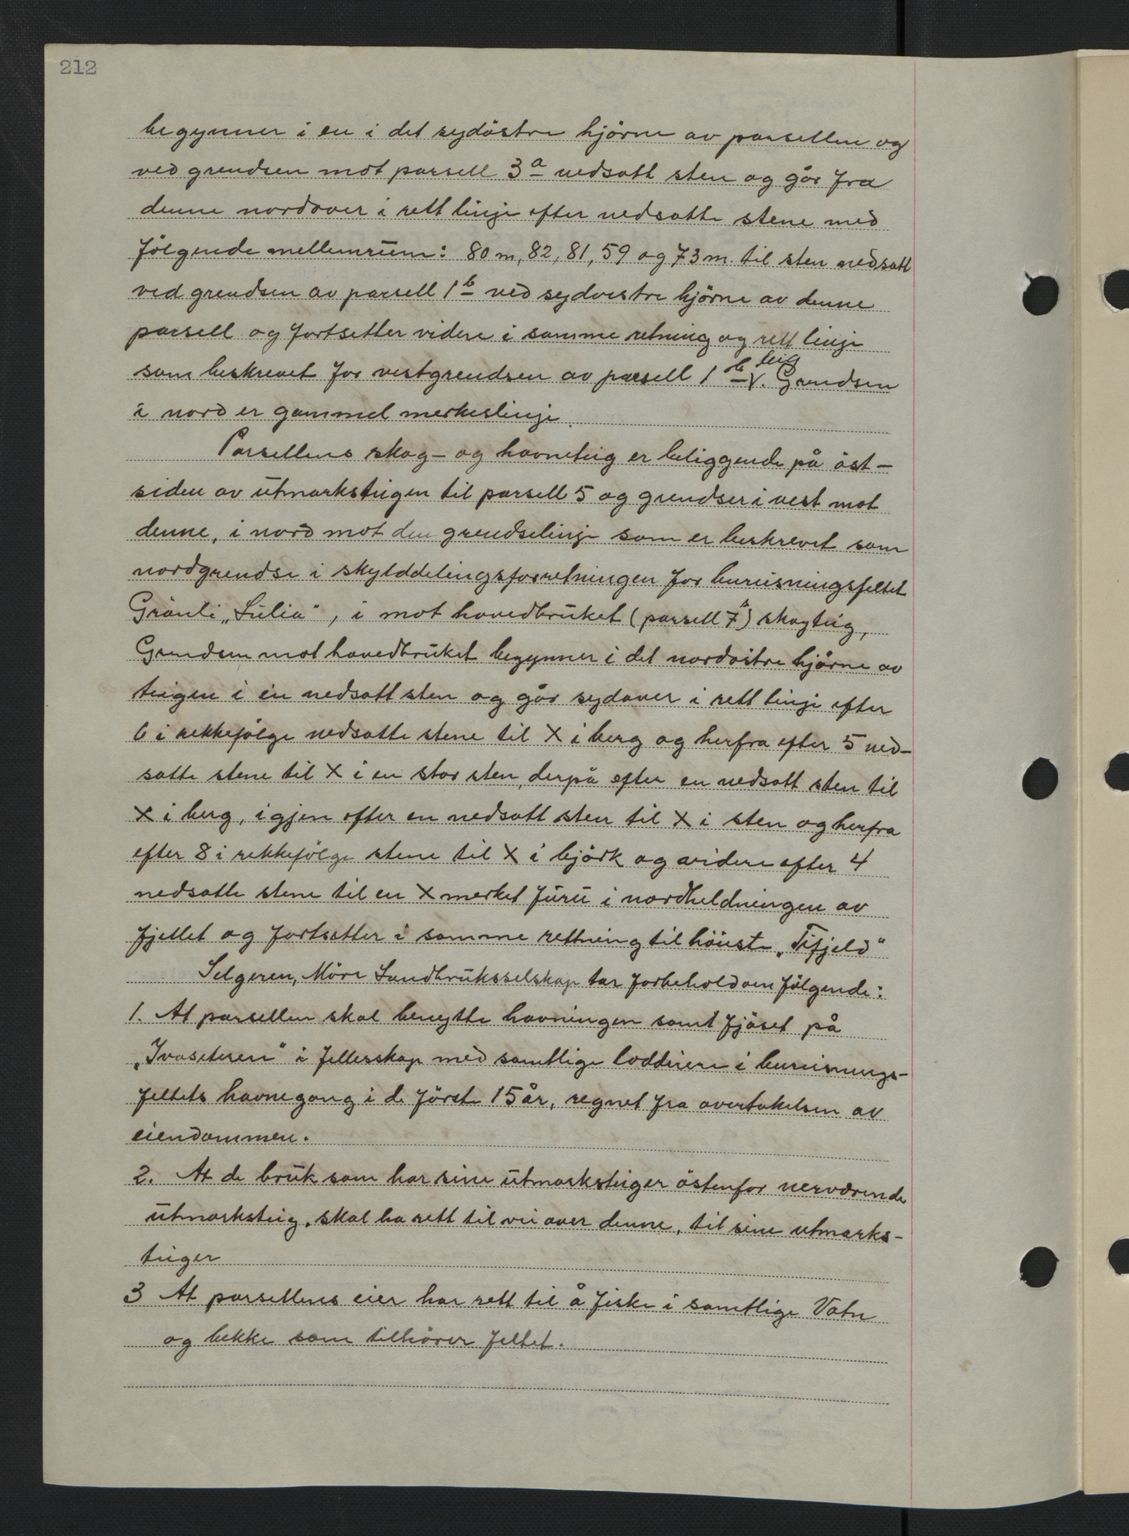 212
begynner i en i det sydöstre hjörne av parsellen og
ved grendsen mot parsell 3a nedsatt sten og går fra
denne nordover i rett linje efter nedsatte stene med
fölgende mellemrum: 80 m, 82, 81, 59 og 73 m. til sten nedsatt
ved grendsen av parsell 1b ved sydvestre hjörne av denne
parsell og fortsetter videre i samme retning og rett linje
som beskrevet for vestgrendsen av parsell 1b teig. Grendsen
i nord er gammel merkeslinje.
Parsellens skog- og havneteig er beliggende på öst-
siden av utmarksteigen til parsell 5 og grendser i vest mot
denne, i nord mot den grendselinje som er beskrevet som
nordgrendse i skylddelingsforretningen for bureisningsfeltet
Grönli „Lulia", i mot hovedbruket (parsell 7b) skogteig,
Grendsen mot hovedbruket begynner i det nordöstre hjörne av
teigen i en nedsatt sten og går sydover i rett linje efter
6 i rekkefölge nedsatte stene til X i berg og herfra efter 5 ned-
satte stene til X i en stor sten, derpå efter en nedsatt sten til
X i berg, igjen efter en nedsatt sten til X i sten og herfra
efter 8 i rekkefölge stene til X i björk og videre efter 4
nedsatte stene til en X merket furu i nordheldningen av
fjellet og fortsetter i samme rettning til höieste „Tifjeld"
Selgeren, Möre Landbruksselskap tar forbehold om fölgende:
1. At parsellen skal benytte havningen samt fjöset på
„Ivaseteren" i fellesskap med samtlige loddeiere i bureisnings-
feltets havnegang i de förste 15 år, regnet fra overtakelsen av
eiendommen.
2. At de bruk som har sine utmarksteiger östenfor nerværende
utmarksteig, skal ha rett til vei over denne, til sine utmarks-
teiger
3 At parsellens eier har rett til å fiske i samtlige Vatn
og bekke som tilhörer feltet.